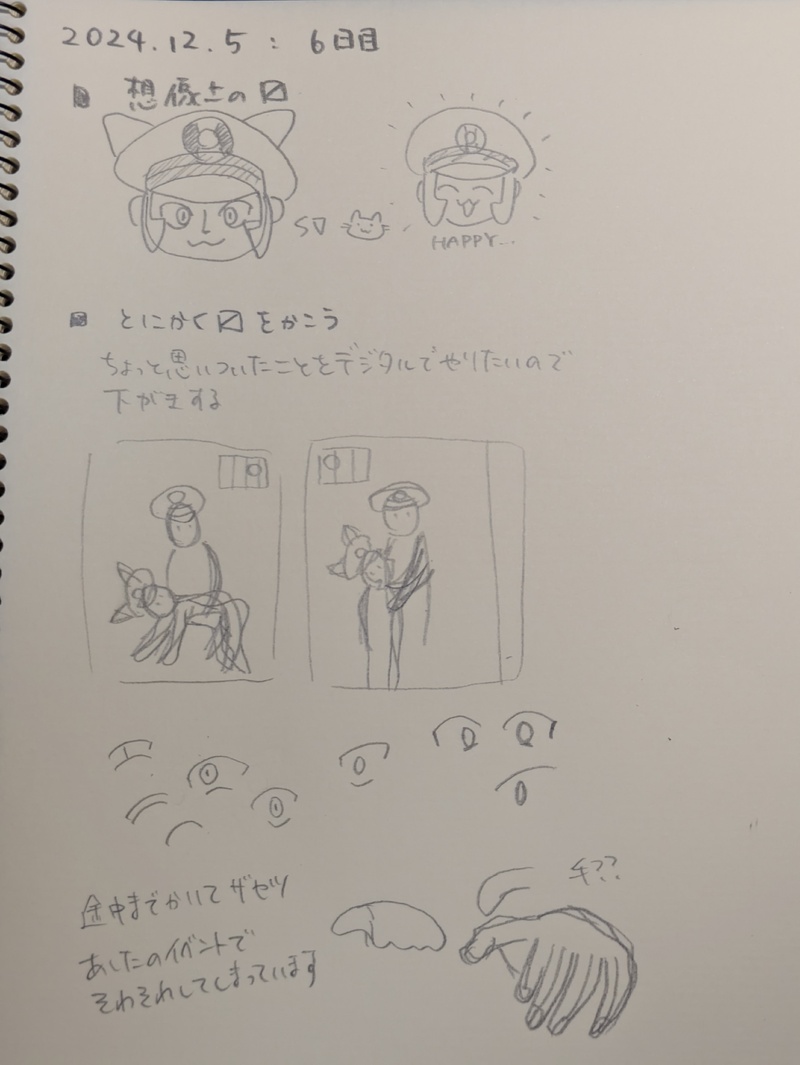 2024.12.5 : 6日目
想像上の〼
HAPPY...
とにかく〼をかこう
ちょっと思いついたことをデジタルでやりたいので
下がきする
手??
途中までかいてザセツ
あしたのイベントで
それそれしてしまっています